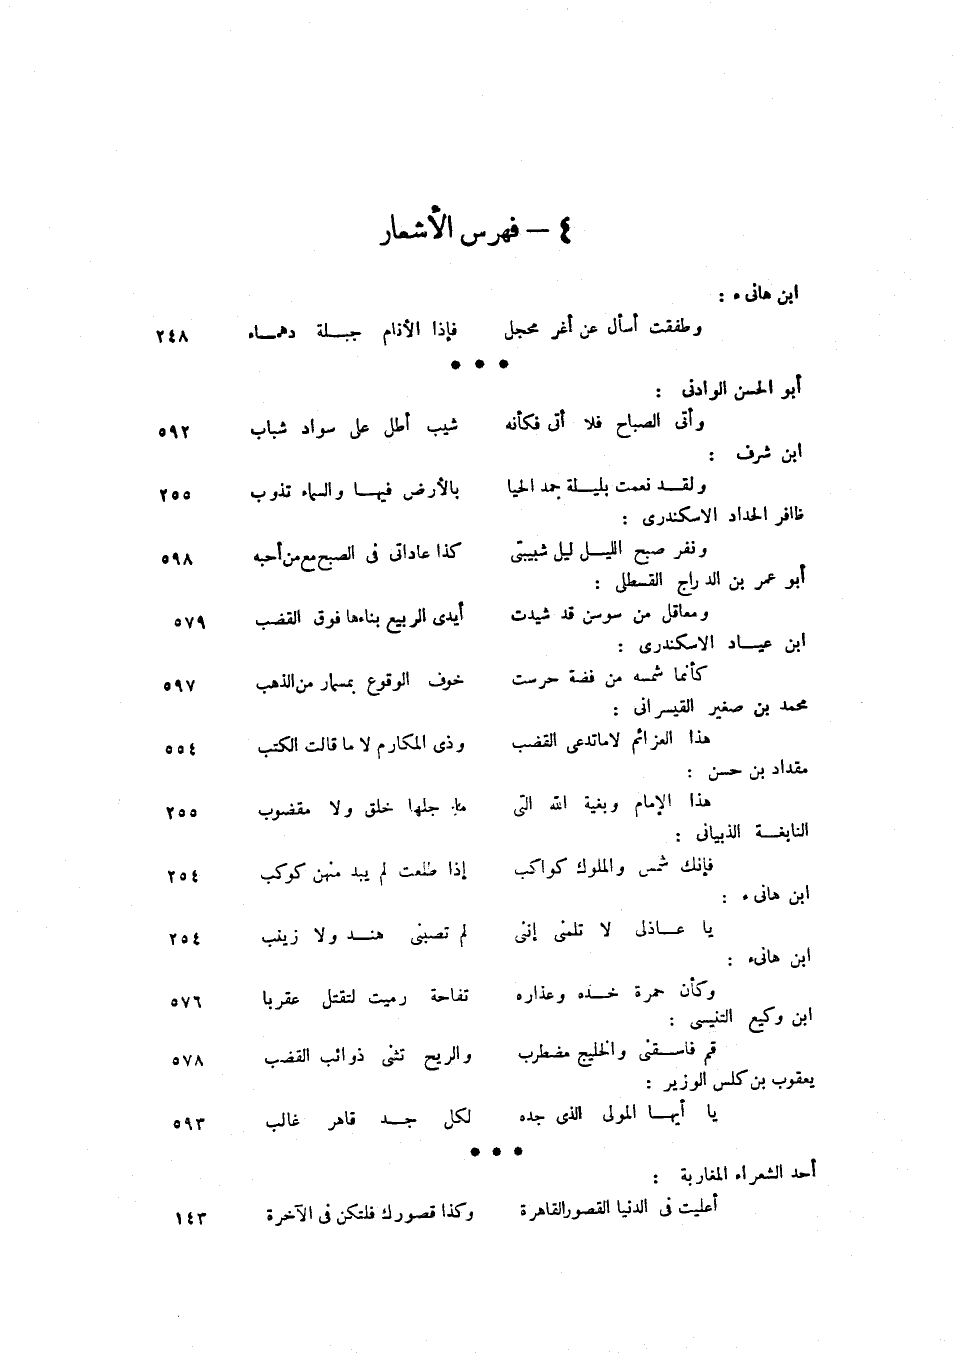 ٤ — فهرس الأشعار
ابن هانىء :
وطفقت أسأل عن أغر محجل فإذا الأنام جبلة دهماء ٢٤٨
● ● ●
أبو الحسن الوادنى :
وأتى الصباح فلا أتى فكأنه شيب أطل على سواد شباب ٥٩٢
ابن شرف :
ولقد نعمت بليلة جمد الحيا بالأرض فيها والسماء تذوب ٢٥٥
ظافر الحداد الاسكندرى :
ونفر صبح الليل ليل شبيبتى كذا عاداتى فى الصبح مع من أحبه ٥٩٨
أبو عمر بن الدراج القسطلى :
ومعاقل من سوسن قد شيدت أيدى الربيع بناءها فوق القضب ٥٧٩
ابن عياد الاسكندرى :
كأنما شمسه من فضة حرست خوف الوقوع بمسمار من الذهب ٥٩٧
محمد بن صغير القيسرانى :
هذا العزائم لا ماتدعى القضب وذى المكارم لا ما قالت الكتب ٥٥٤
مقداد بن حسن :
هذا الإمام وبغية الله التى ما جلها خلق ولا مقضوب ٢٥٥
النابغة الذبيانى :
فإنك شمس والملوك كواكب إذا طلعت لم يبد منهن كوكب ٢٥٤
ابن هانىء :
يا عاذلى لا تلمنى إننى لم تصبنى هند ولا زينب ٢٥٤
ابن هانىء :
وكأن حمرة خده وعذاره تفاحة رميت لتقتل عقربا ٥٧٦
ابن وكيع التنيسى :
قم فاسقنى والخليج مضطرب والريح تثنى ذوائب القضب ٥٧٨
يعقوب بن كلس الوزير :
يا أيها المولى الذى جده لكل جد قاهر غالب ٥٩٣
● ● ●
أحد الشعراء المغاربة :
أعليت فى الدنيا القصور القاهرة وكذا قصورك فلتكن فى الآخرة ١٤٣